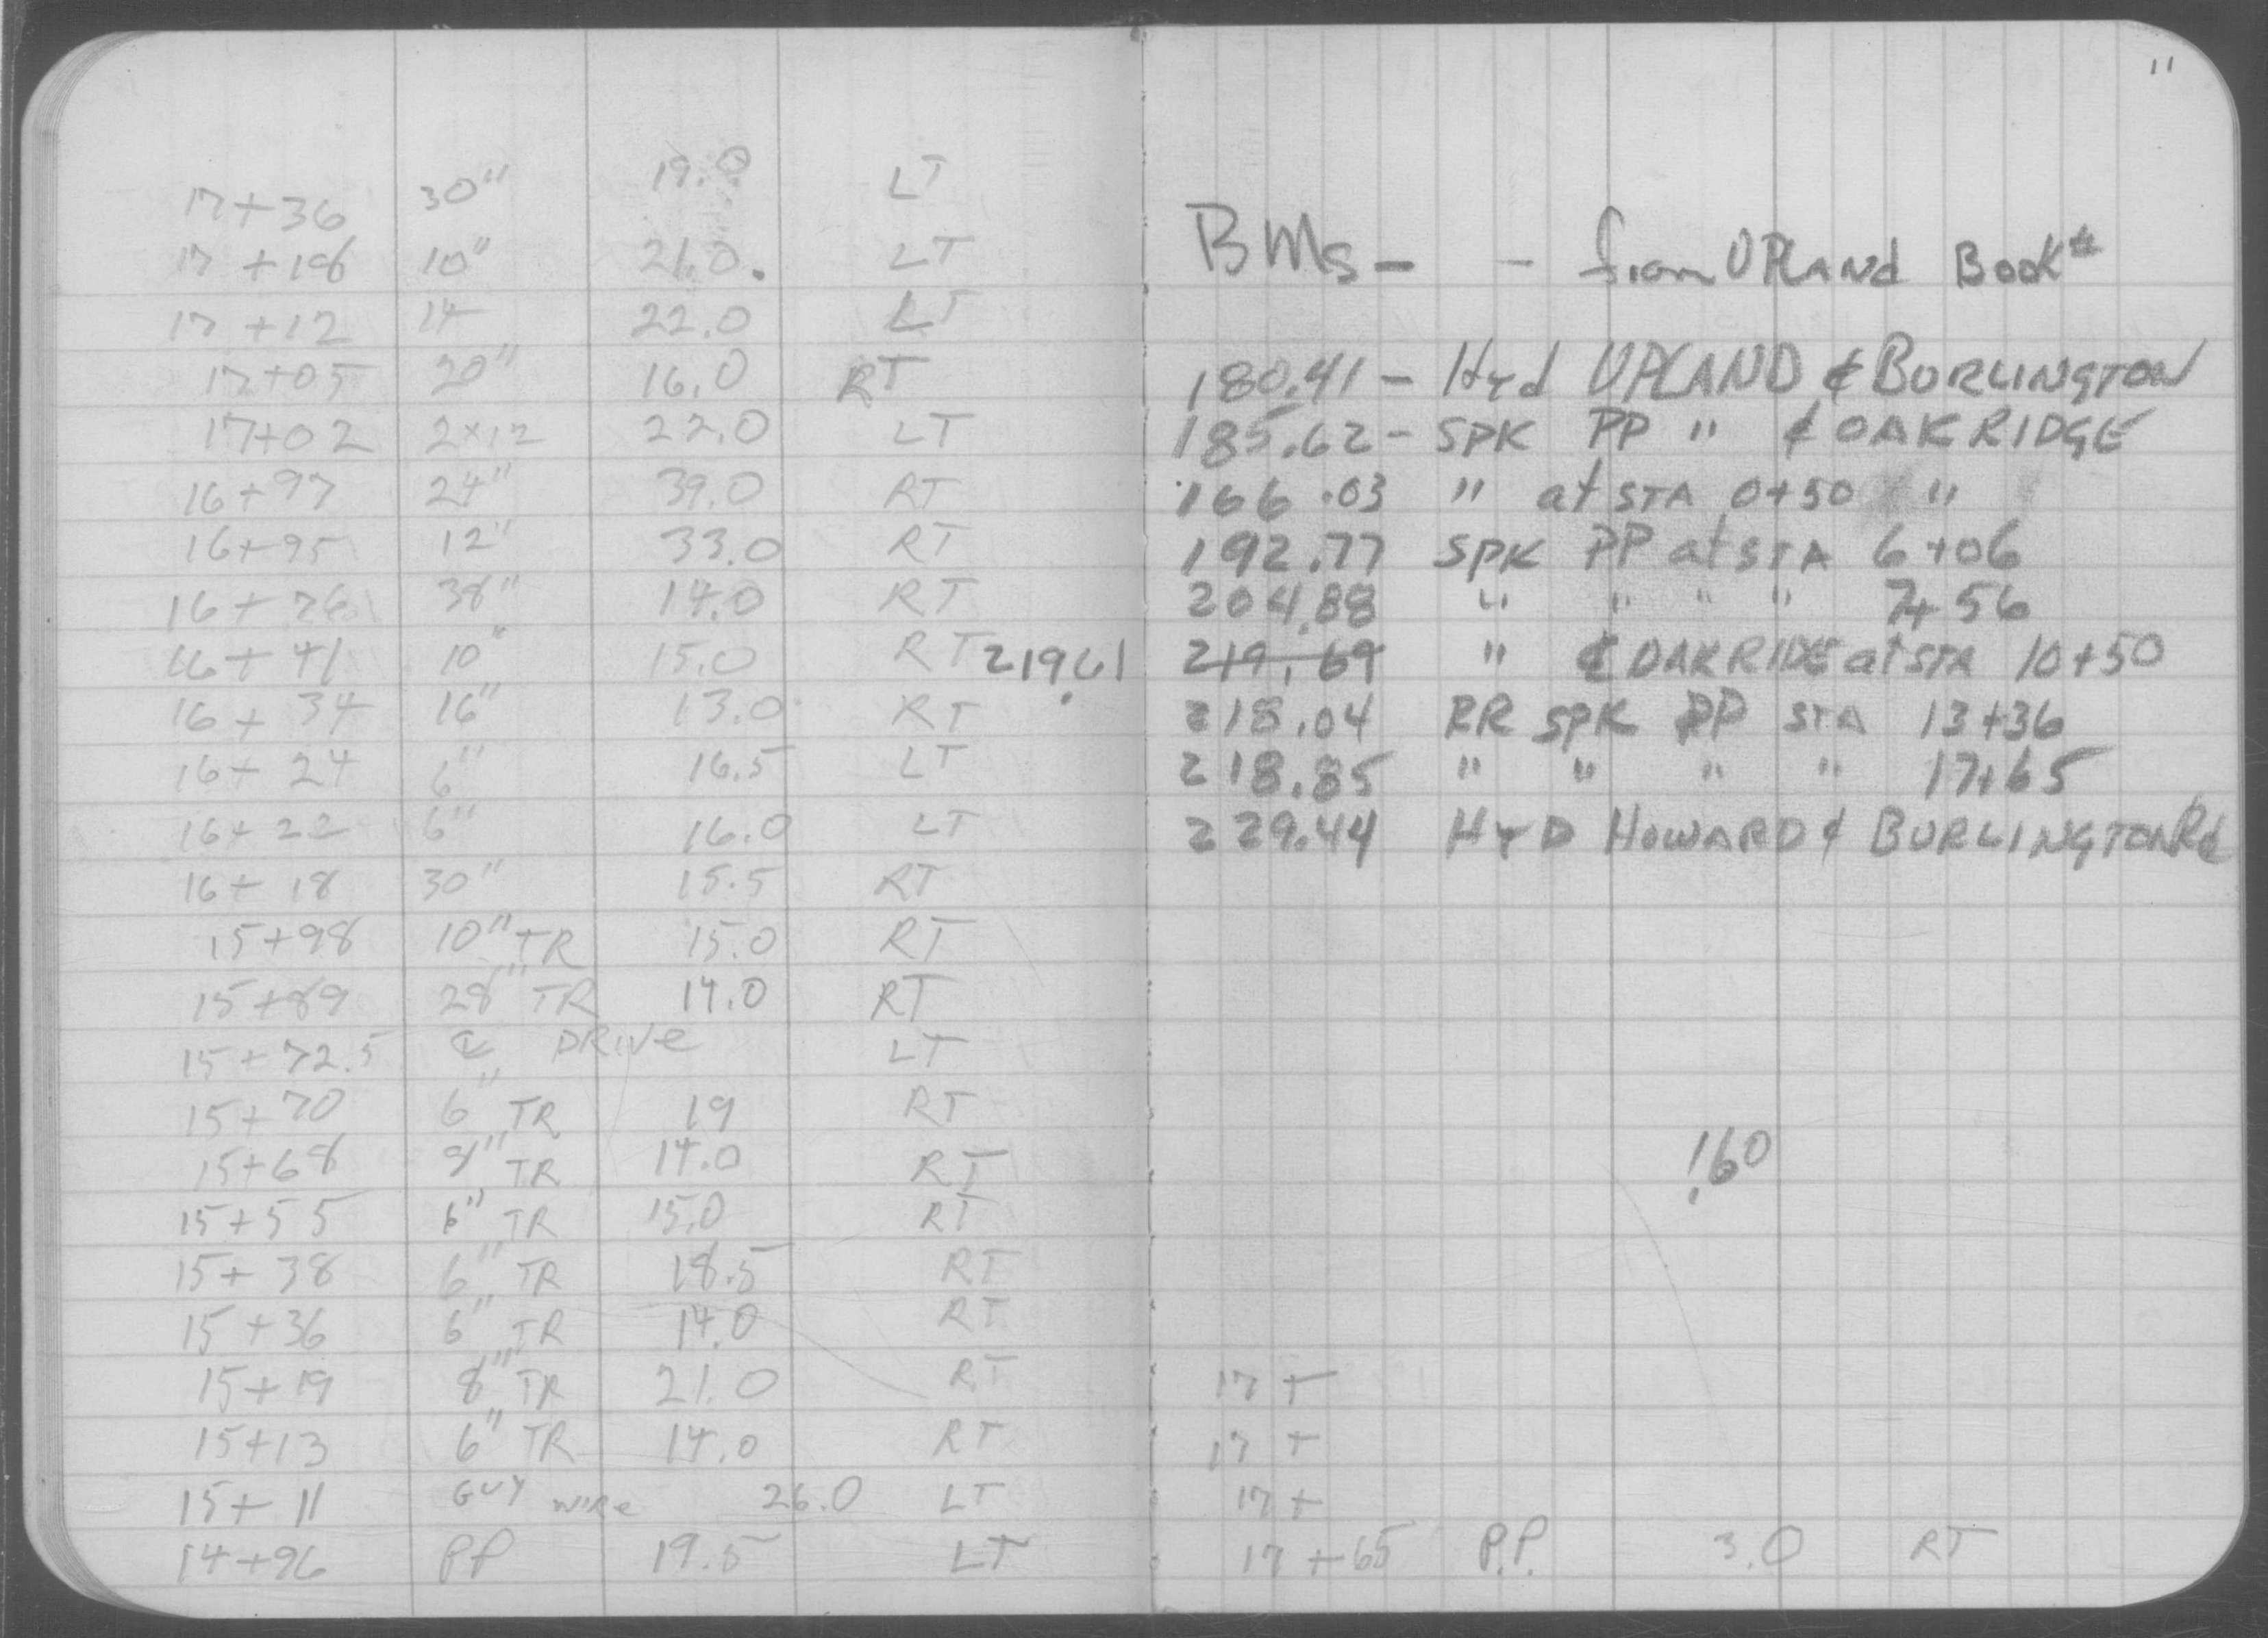 17+36 30" 19.0 LT
17+18 10" 21.0. LT
17+12 14 22.0 LT
17+05 20" 16.0 RT
17+02 2x12 22.0 LT
16+97 24" 39.0 RT
16+95 12" 33.0 RT
16+76 38" 14.0 RT
16+41 10" 15.0 RT
16+34 16" 13.0 RT
16+24 6" 16.5 LT
16+22 6" 16.0 LT
16+18 30" 15.5 RT
15+98 10" TR 15.0 RT
15+89 28" TR 14.0 RT
15+72.5 ℄ DRIVE LT
15+70 6" TR 19 RT
15+68 8" TR 14.0 RT
15+55 6" TR 15.0 RT
15+38 6" TR 18.5 RT
15+36 6" TR 14.0 RT
15+19 8" TR 21.0 RT
15+13 6" TR 14.0 RT
15+11 GUY WIRE 26.0 LT
14+96 PP 19.5 LT
11
BMs - - from UPLANd Book#
180.41 - Hyd UPLAND & BURLINGTON
185.62 - SPK PP " & OAKRIDGE
166.03 " at STA 0+50 "
192.77 SPK PP at STA 6+06
204.88 " " " " 7+56
219.61 219.69 " & OAKRIDE at STA 10+50
218.04 RR SPK PP STA 13+36
218.85 " " " " 17+65
229.44 HYD HOWARD & BURLINGTON Rd
160
17+
17+
17+
17+65 P.P. 3.0 RT